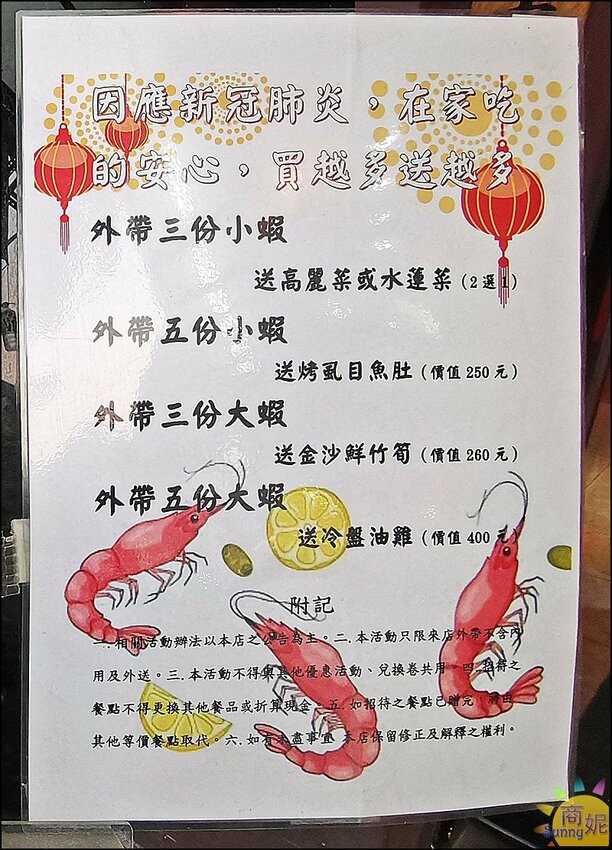 因應新冠肺炎，在家吃
的安心，買越多送越多
外帶三份小蝦
送高麗菜或水蓮菜(2選1)
外帶五份小蝦
送烤虱目魚肚(價值250元)
外帶三份大蝦
送金沙鮮竹筍(價值260元)
外帶五份大蝦
送冷盤油雞(價值400元)
附記
一.相關活動辦法以本店之公告為主。二.本活動只限來店外帶不含內
用及外送。三.本活動不得與其他優惠活動、兌換卷共用。四.招待之
餐點不得更換其他餐品或折算現金。五.如招待之餐點已贈完 將由
其他等價餐點取代。六.如有未盡事宜 本店保留修正及解釋之權利。
商妮
Sunny